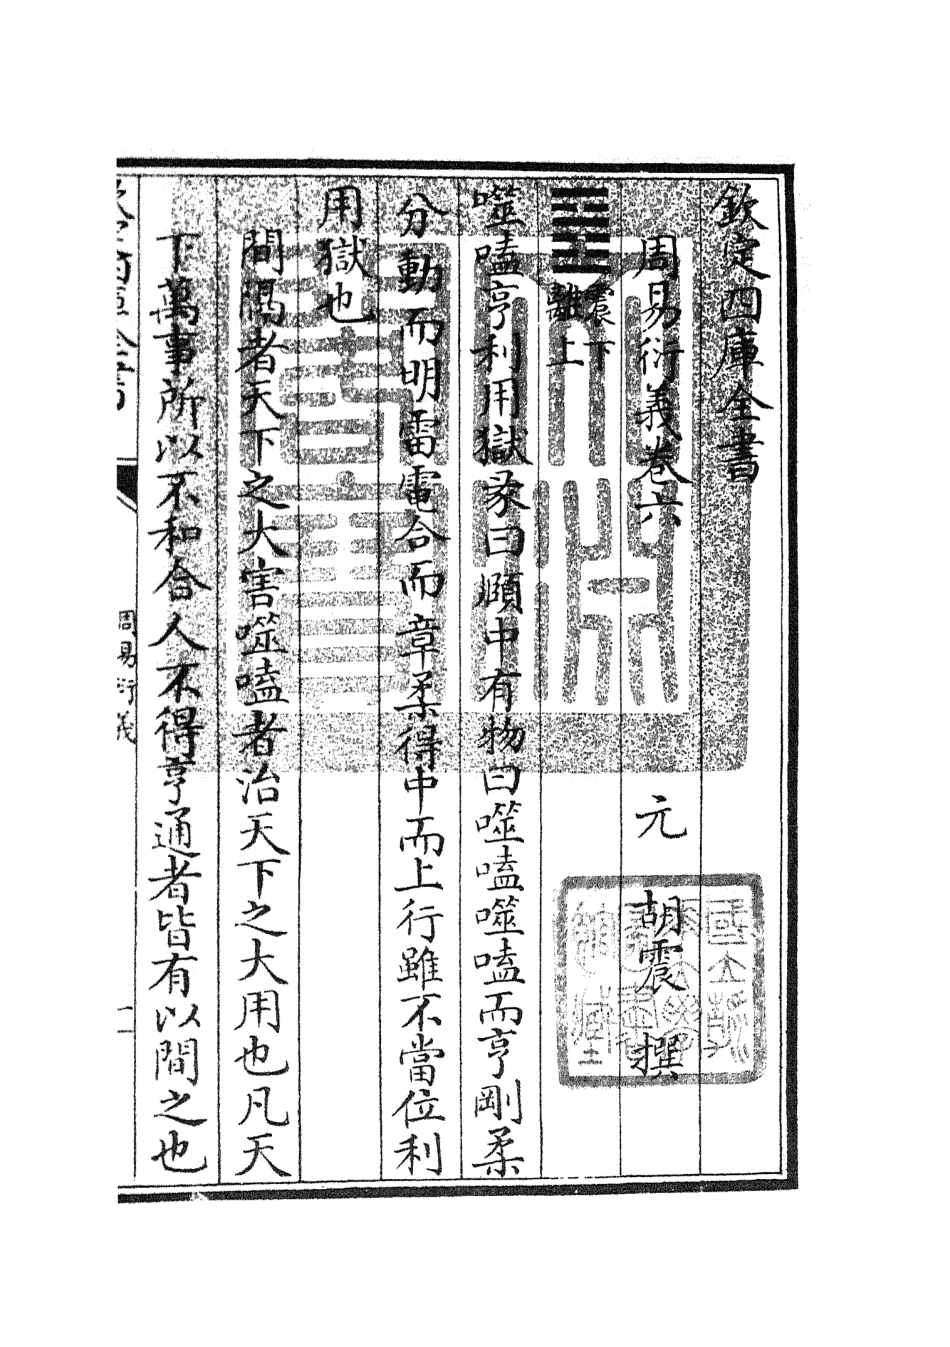 欽定四庫全書
周易衍義卷六
元 胡震 撰
震下
離上
噬嗑亨利用獄彖曰頤中有物曰噬嗑噬嗑而亨剛柔
分動而明雷電合而章柔得中而上行雖不當位利
用獄也
間隔者天下之大害噬嗑者治天下之大用也凡天
下萬事所以不和合人不得亨通者皆有以間之也
周易衍義